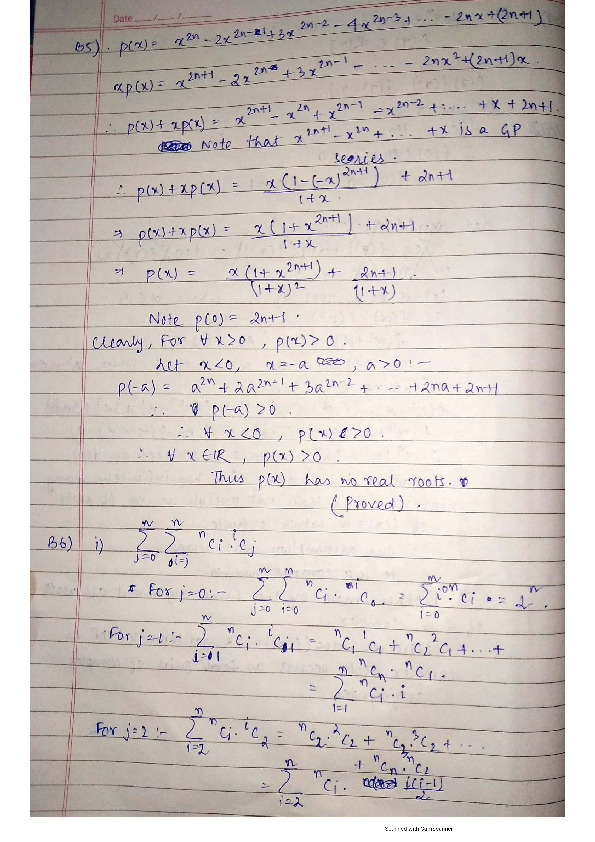 Date ___/___/___
B5). p(x) = x^{2n} - 2x^{2n-1} + 3x^{2n-2} - 4x^{2n-3} + ... - 2nx + (2n+1)
xp(x) = x^{2n+1} - 2x^{2n} + 3x^{2n-1} - ... - 2nx² + (2n+1)x.
∴ p(x) + xp(x) = x^{2n+1} - x^{2n} + x^{2n-1} - x^{2n-2} + .... + x + 2n+1.
Note that x^{2n+1} - x^{2n} + ... + x is a GP
series.
∴ p(x) + xp(x) = x(1-(-x)^{2n+1})/(1+x) + 2n+1
⇒ p(x) + xp(x) = x(1+x^{2n+1})/(1+x) + 2n+1.
⇒ p(x) = x(1+x^{2n+1})/(1+x)² + (2n+1)/(1+x).
Note p(0) = 2n+1.
Clearly, For ∀ x>0, p(x)>0.
Let x<0, x=-a, a>0 :-
p(-a) = a^{2n} + 2a^{2n-1} + 3a^{2n-2} + .... + 2na + 2n+1
∴ p(-a) >0.
∴ ∀ x<0, p(x)>0.
∴ ∀ x∈ℝ, p(x)>0.
Thus p(x) has no real roots.
(Proved).
B6) i) ∑_{j=0}^{n} ∑_{i=j}^{n} ⁿC_i · ⁱC_j
For j=0:- ∑_{j=0}^{n} ∑_{i=0}^{n} ⁿC_i · ⁱC_0 = ∑_{i=0}^{n} ⁿC_i = 2ⁿ.
For j=1 :- ∑_{i=1}^{n} ⁿC_i · ⁱC_1 = ⁿC_1 ¹C_1 + ⁿC_2 ²C_1 + ... +
ⁿC_n · ⁿC_1.
= ∑_{i=1}^{n} ⁿC_i · i
For j=2 :- ∑_{i=2}^{n} ⁿC_i · ⁱC_2 = ⁿC_2 · ²C_2 + ⁿC_3 · ³C_2 + ...
+ ⁿC_n · ⁿC_2
= ∑_{i=2}^{n} ⁿC_i · i(i-1)/2